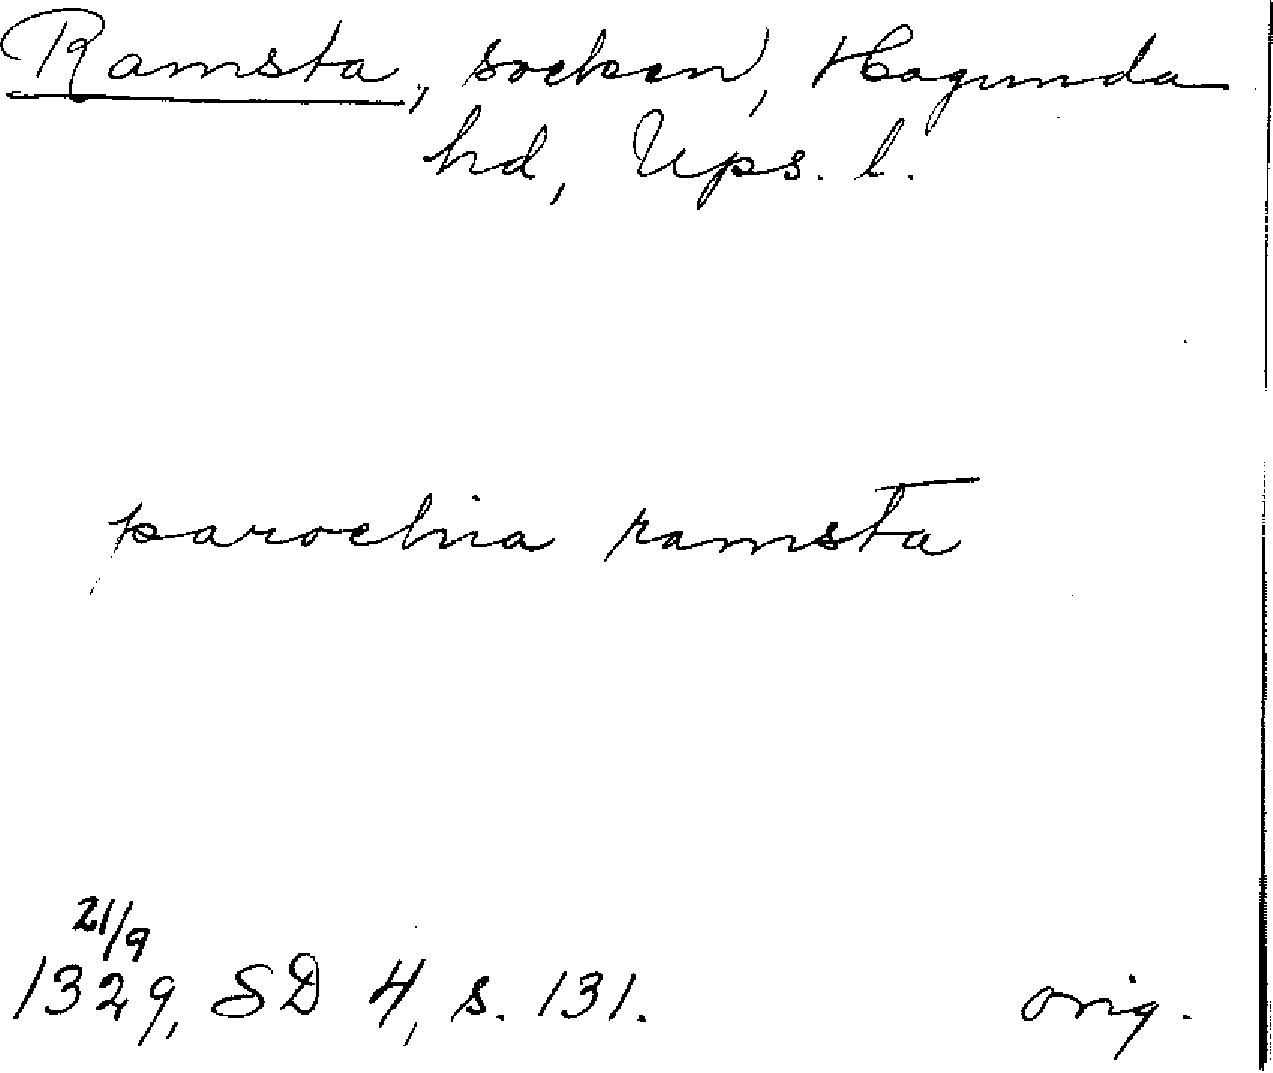 Ramsta, socken, Hagunda
hd, Ups. l.
parochia ramsta
21/9
1329, SD 4, s. 131. orig.